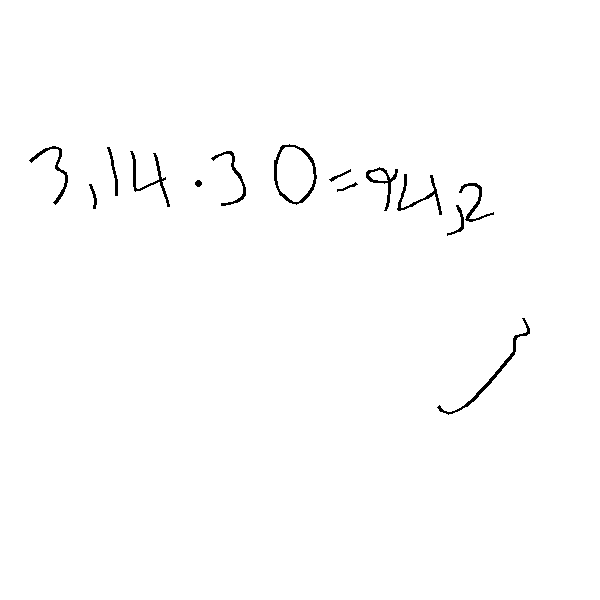 3,14·30=94,2